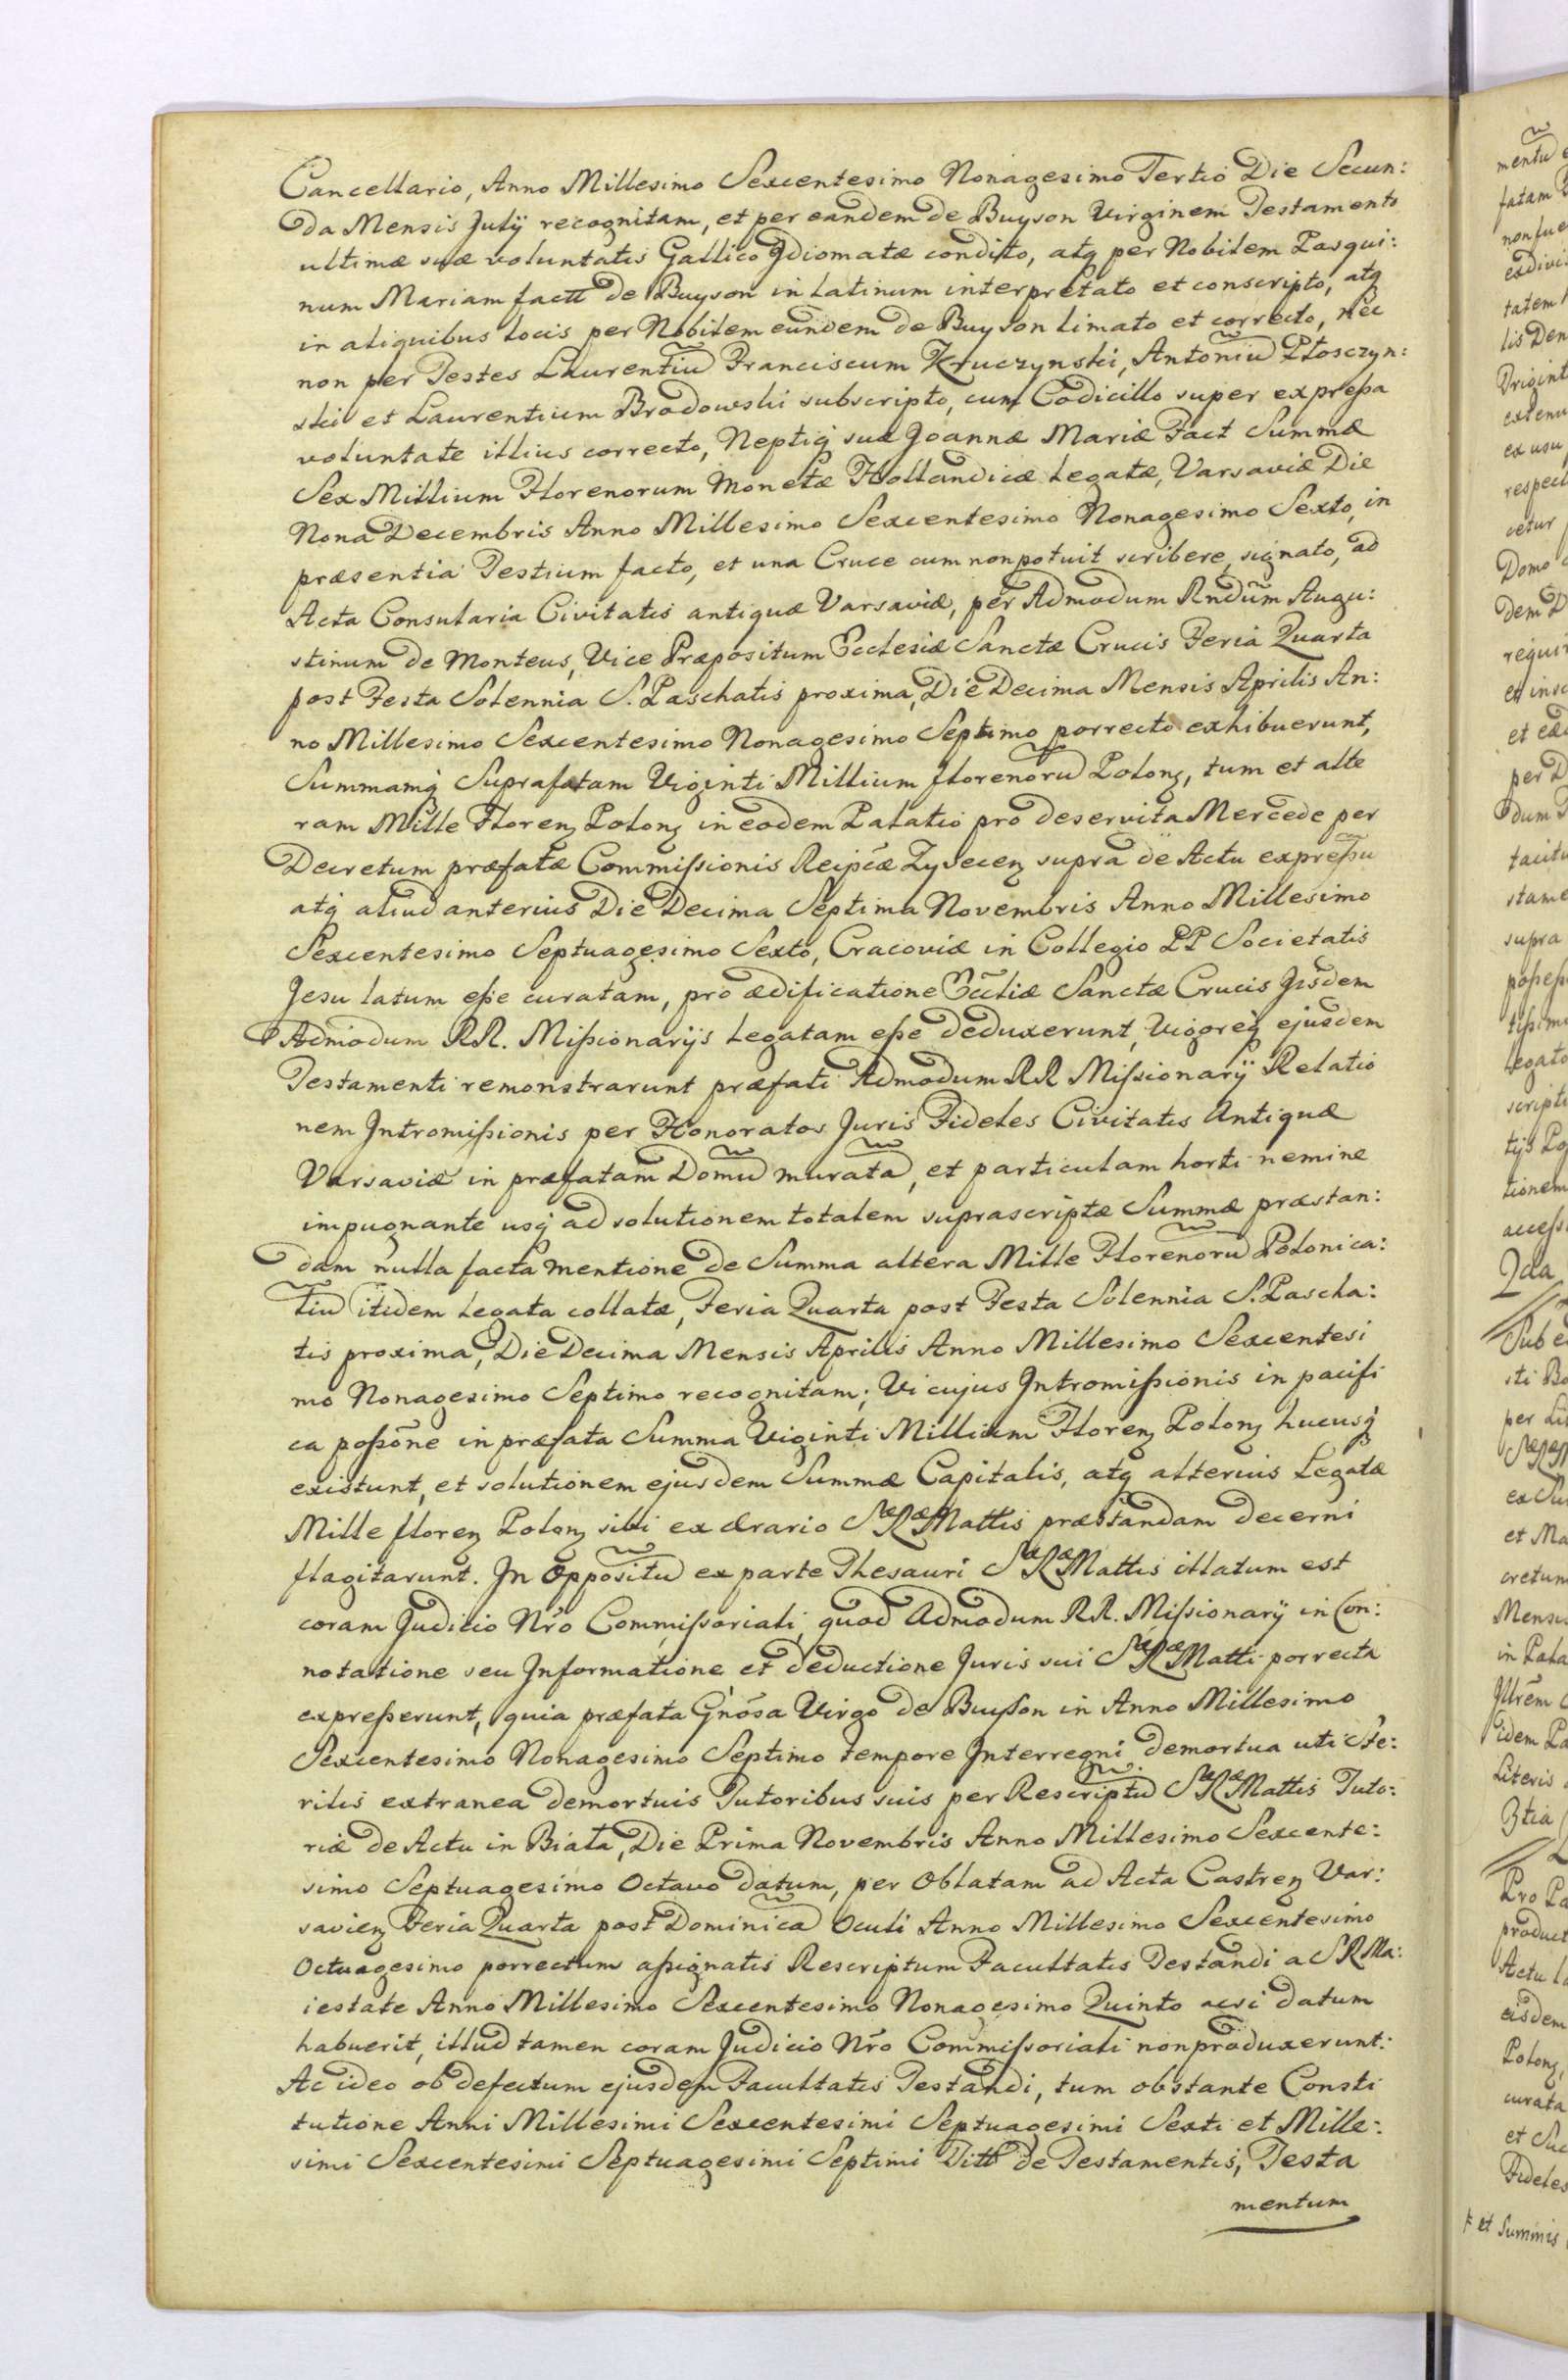 Cancellario, Anno Millesimo Sexcentesimo Nonagesimo Tertio Die Secun:
da Mensis Julÿ recognitam, et per eandem de Buyson Virginem Testamento
ultimæ suæ voluntatis Gallico Jdiomatæ condito, atq per Nobilem Pasqui:
num Mariam factt de Buyson in Latinum interpretato et conscripto, atq
in aliquibus locis per Nobilem eundem de Buyson limato et correcto, nec
non per Testes Laurentiũ Franciscum Kruczynski, Antoniũ Płosczyn:
ski et Laurentium Brodowski subscripto, cum Codicillo super expreßa
voluntate illius correcto, Neptiq suæ Joannæ Mariæ Fact Summæ
Sex Millium Florenorum Monetæ Hollandicæ Legatæ, Varsaviæ Die
Nona Decembris Anno Millesimo Sexcentesimo Nonagesimo Sexto, in
præsentia Testium facto, et una Cruce cum non potuit scribere, signato, ad
Acta Consularia Civitatis antiquæ Varsaviæ, per Admodum Rndũm Augu:
stinum de Monteus, Vice Præpositum Ecclesiæ Sanctæ Crucis Feria Quarta
post Festa Solennia S. Paschatis proxima, Die Decima Mensis Aprilis An:
no Millesimo Sexcentesimo Nonagesimo Septimo porrecto exhibuerunt,
Summamq Suprafatam Viginti Millium florenorũ Polonꝫ, tum et alte
ram Mille Florenꝫ Polonꝫ in eodem Palatio pro deservita Mercede per
Decretum præfatæ Commißionis Reipcæ Zyvecenꝫ supra de Actu expreßũ
atq aliud anterius Die Decima Septima Novembris Anno Millesimo
Sexcentesimo Septuagesimo Sexto, Cracoviæ in Collegio PP Societatis
Jesu latum eße curatam, pro ædificatione Eccliæ Sanctæ Crucis Jisdem
Admodum RR. Mißionarÿs Legatam eße deduxerunt, Vigoreq ejusdem
Testamenti remonstrarunt præfati Admodum RR Mißionarÿ Relatio
nem Jntromißionis per Honoratos Juris Fideles Civitatis Antiquæ
Varsaviæ in præfatam Domũ muratã, et particulam horti nemine
impugnante usq ad solutionem totalem suprascriptæ Summæ præstan:
dam nulla facta mentione de Summa altera Mille Florenorũ Polonica:
liũ itidem Legata collatæ, Feria Quarta post Festa Solennia S. Pascha:
tis proxima, Die Decima Mensis Aprilis Anno Millesimo Sexcentesi
mo Nonagesimo Septimo recognitam; Vi cujus Jntromißionis in pacifi
ca poßõne in præfata Summa Viginti Millium Florenꝫ Polonꝫ hucusq
existunt, et solutionem ejusdem Summæ Capitalis, atq alterius Legatæ
Mille florenꝫ Polonꝫ sibi ex ærario SæRæMattis præstandam decerni
flagitarunt. Jn Oppositũ ex parte Thesauri SæRæMattis illatum est
coram Judicio Nro Commißoriali, quod Admodum RR. Mißionarÿ in Con:
notatione seu Jnformatione et deductione Juris sui SæRæMatti porrecta
expreßerunt, quia præfata Gnõsa Virgo de Buyson in Anno Millesimo
Sexcentesimo Nonagesimo Septimo tempore Jnterregni demortua uti Ste:
rilis extranea demortuis Tutoribus suis per Rescriptũ SæRæMattis Tuto:
riæ de Actu in Biała, Die Prima Novembris Anno Millesimo Sexcente:
simo Septuagesimo Octavo datum, per Oblatam ad Acta Castrenꝫ Var:
savienꝫ Feria Quarta post Dominicã Oculi Anno Millesimo Sexcentesimo
Octuagesimo porrectum aßignatis Rescriptum Facultatis Testandi a SRMa:
iestate Anno Millesimo Sexcentesimo Nonagesimo Quinto acsi datum
habuerit, illud tamen coram Judicio Nro Commißoriali non produxerunt:
Ac ideo ob defectum ejusdem Facultatis Testandi, tum obstante Consti
tutione Anni Millesimi Sexcentesimi Septuagesimi Sexti et Mille:
simi Sexcentesimi Septuagesimi Septimi Titt de Testamentis, Testa
mentum